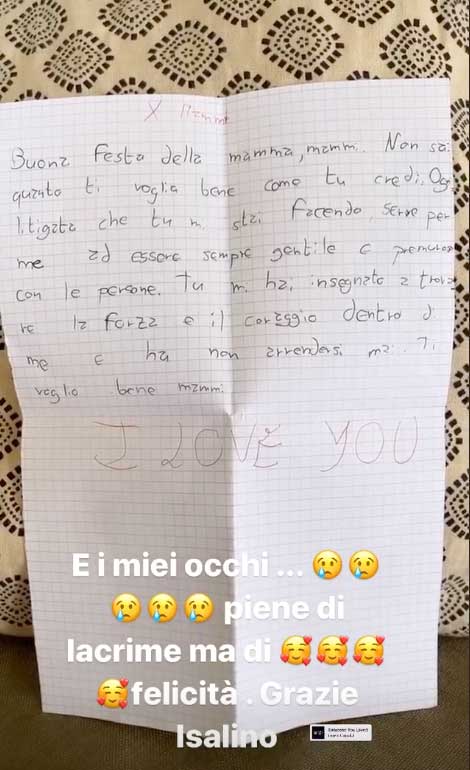 X Mamma
Buona festa della mamma, mammi. Non sai
quanto ti voglia bene come tu credi. Ogni
litigata che tu mi stai facendo, serve per
me ad essere sempre gentile e premuroso
con le persone. Tu mi hai insegnato a trova
re la forza e il coraggio dentro di
me e ha non arrendersi mai. Ti
voglio bene mammi
I LOVE YOU
E i miei occhi ... 😢😢
😢😢😢 piene di
lacrime ma di 🥰🥰🥰
🥰felicità . Grazie
Isalino
Someone You Loved
Lewis Capaldi